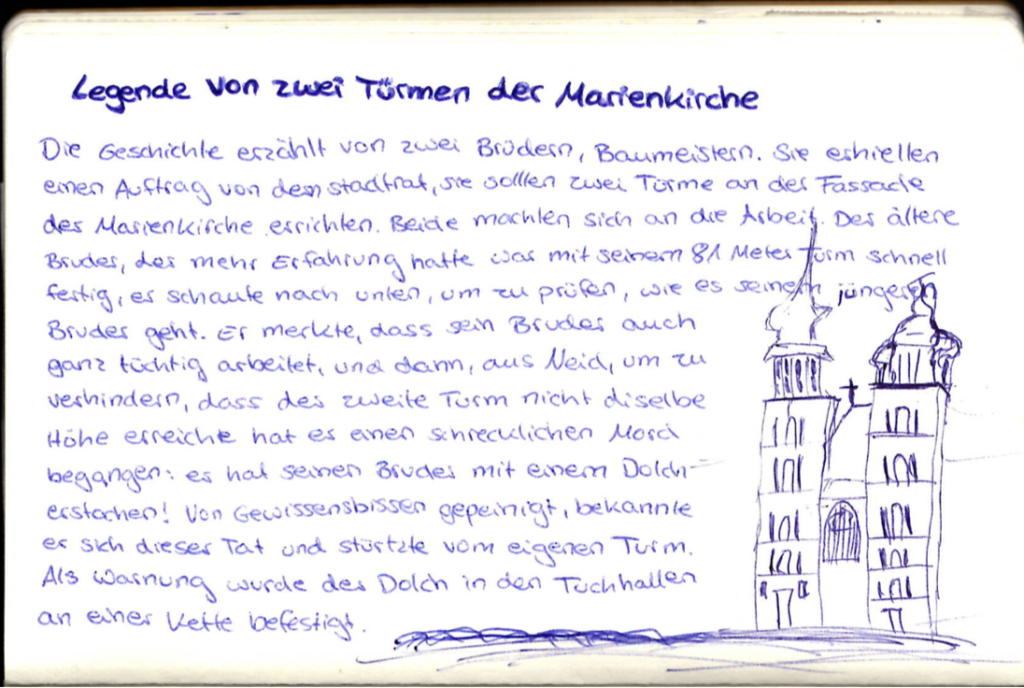 Legende von zwei Türmen der Marienkirche
Die Geschichte erzählt von zwei Brüdern, Baumeistern. Sie erhielten
einen Auftrag von dem Stadtrat, sie sollten zwei Türme an der Fassade
der Marienkirche errichten. Beide machten sich an die Arbeit. Der ältere
Bruder, der mehr Erfahrung hatte war mit seinem 81 Meter Turm schnell
fertig, er schaute nach unten, um zu prüfen, wie es seinem jüngeren
Bruder geht. Er merkte, dass sein Bruder auch
ganz tüchtig arbeitet, und dann, aus Neid, um zu
verhindern, dass der zweite Turm nicht diselbe
Höhe erreichte hat er einen schrecklichen Mord
begangen: er hat seinen Bruder mit einem Dolch
erstochen! Von Gewissensbissen gepeinigt, bekannte
er sich dieser Tat und stürtzte vom eigenen Turm.
Als Warnung wurde der Dolch in den Tuchhallen
an einer Kette befestigt.